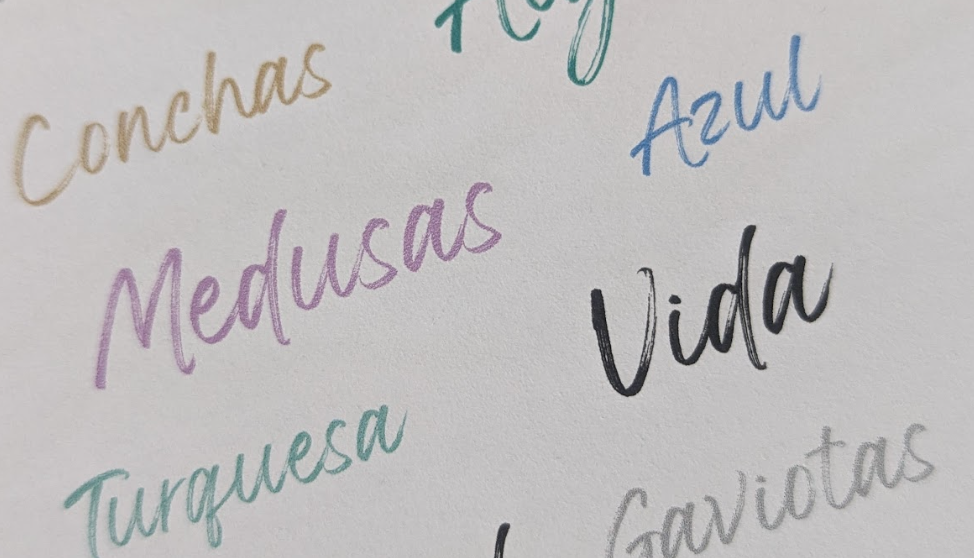 Conchas
Azul
Medusas
Vida
Turquesa
Gaviotas